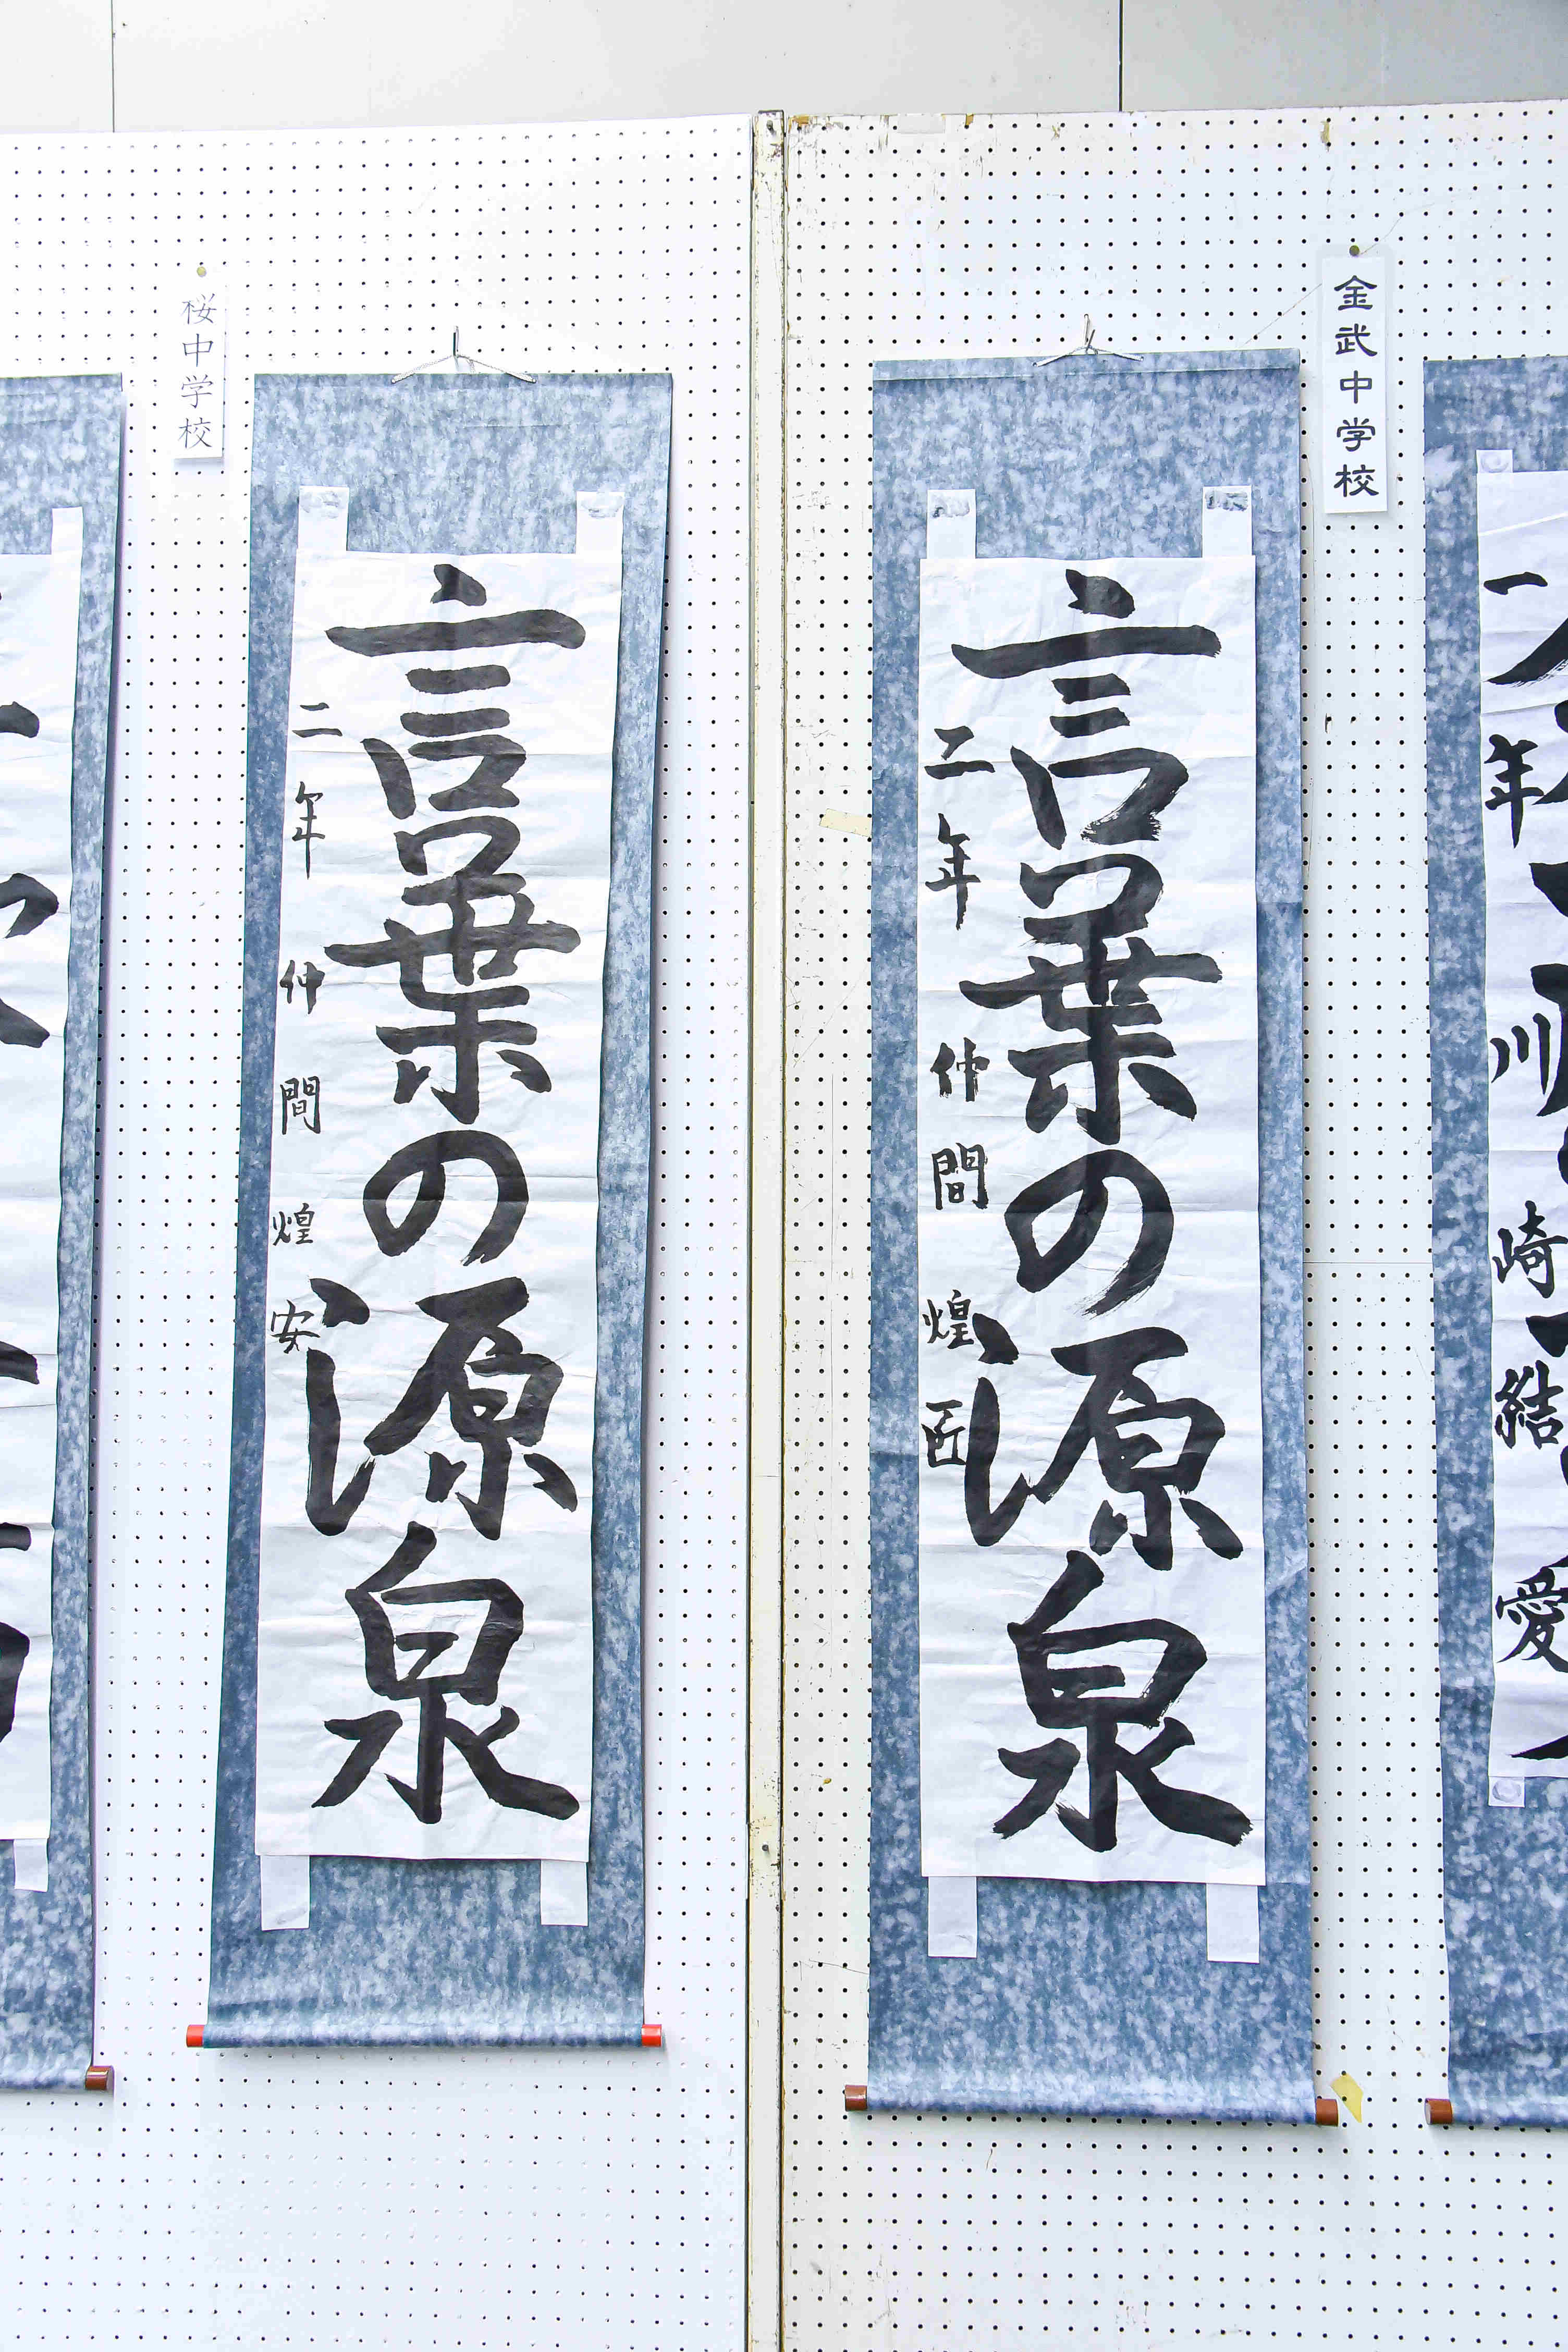 金武中学校
言葉の源泉
二年 仲間煌匠
桜中学校
言葉の源泉
二年 仲間煌安